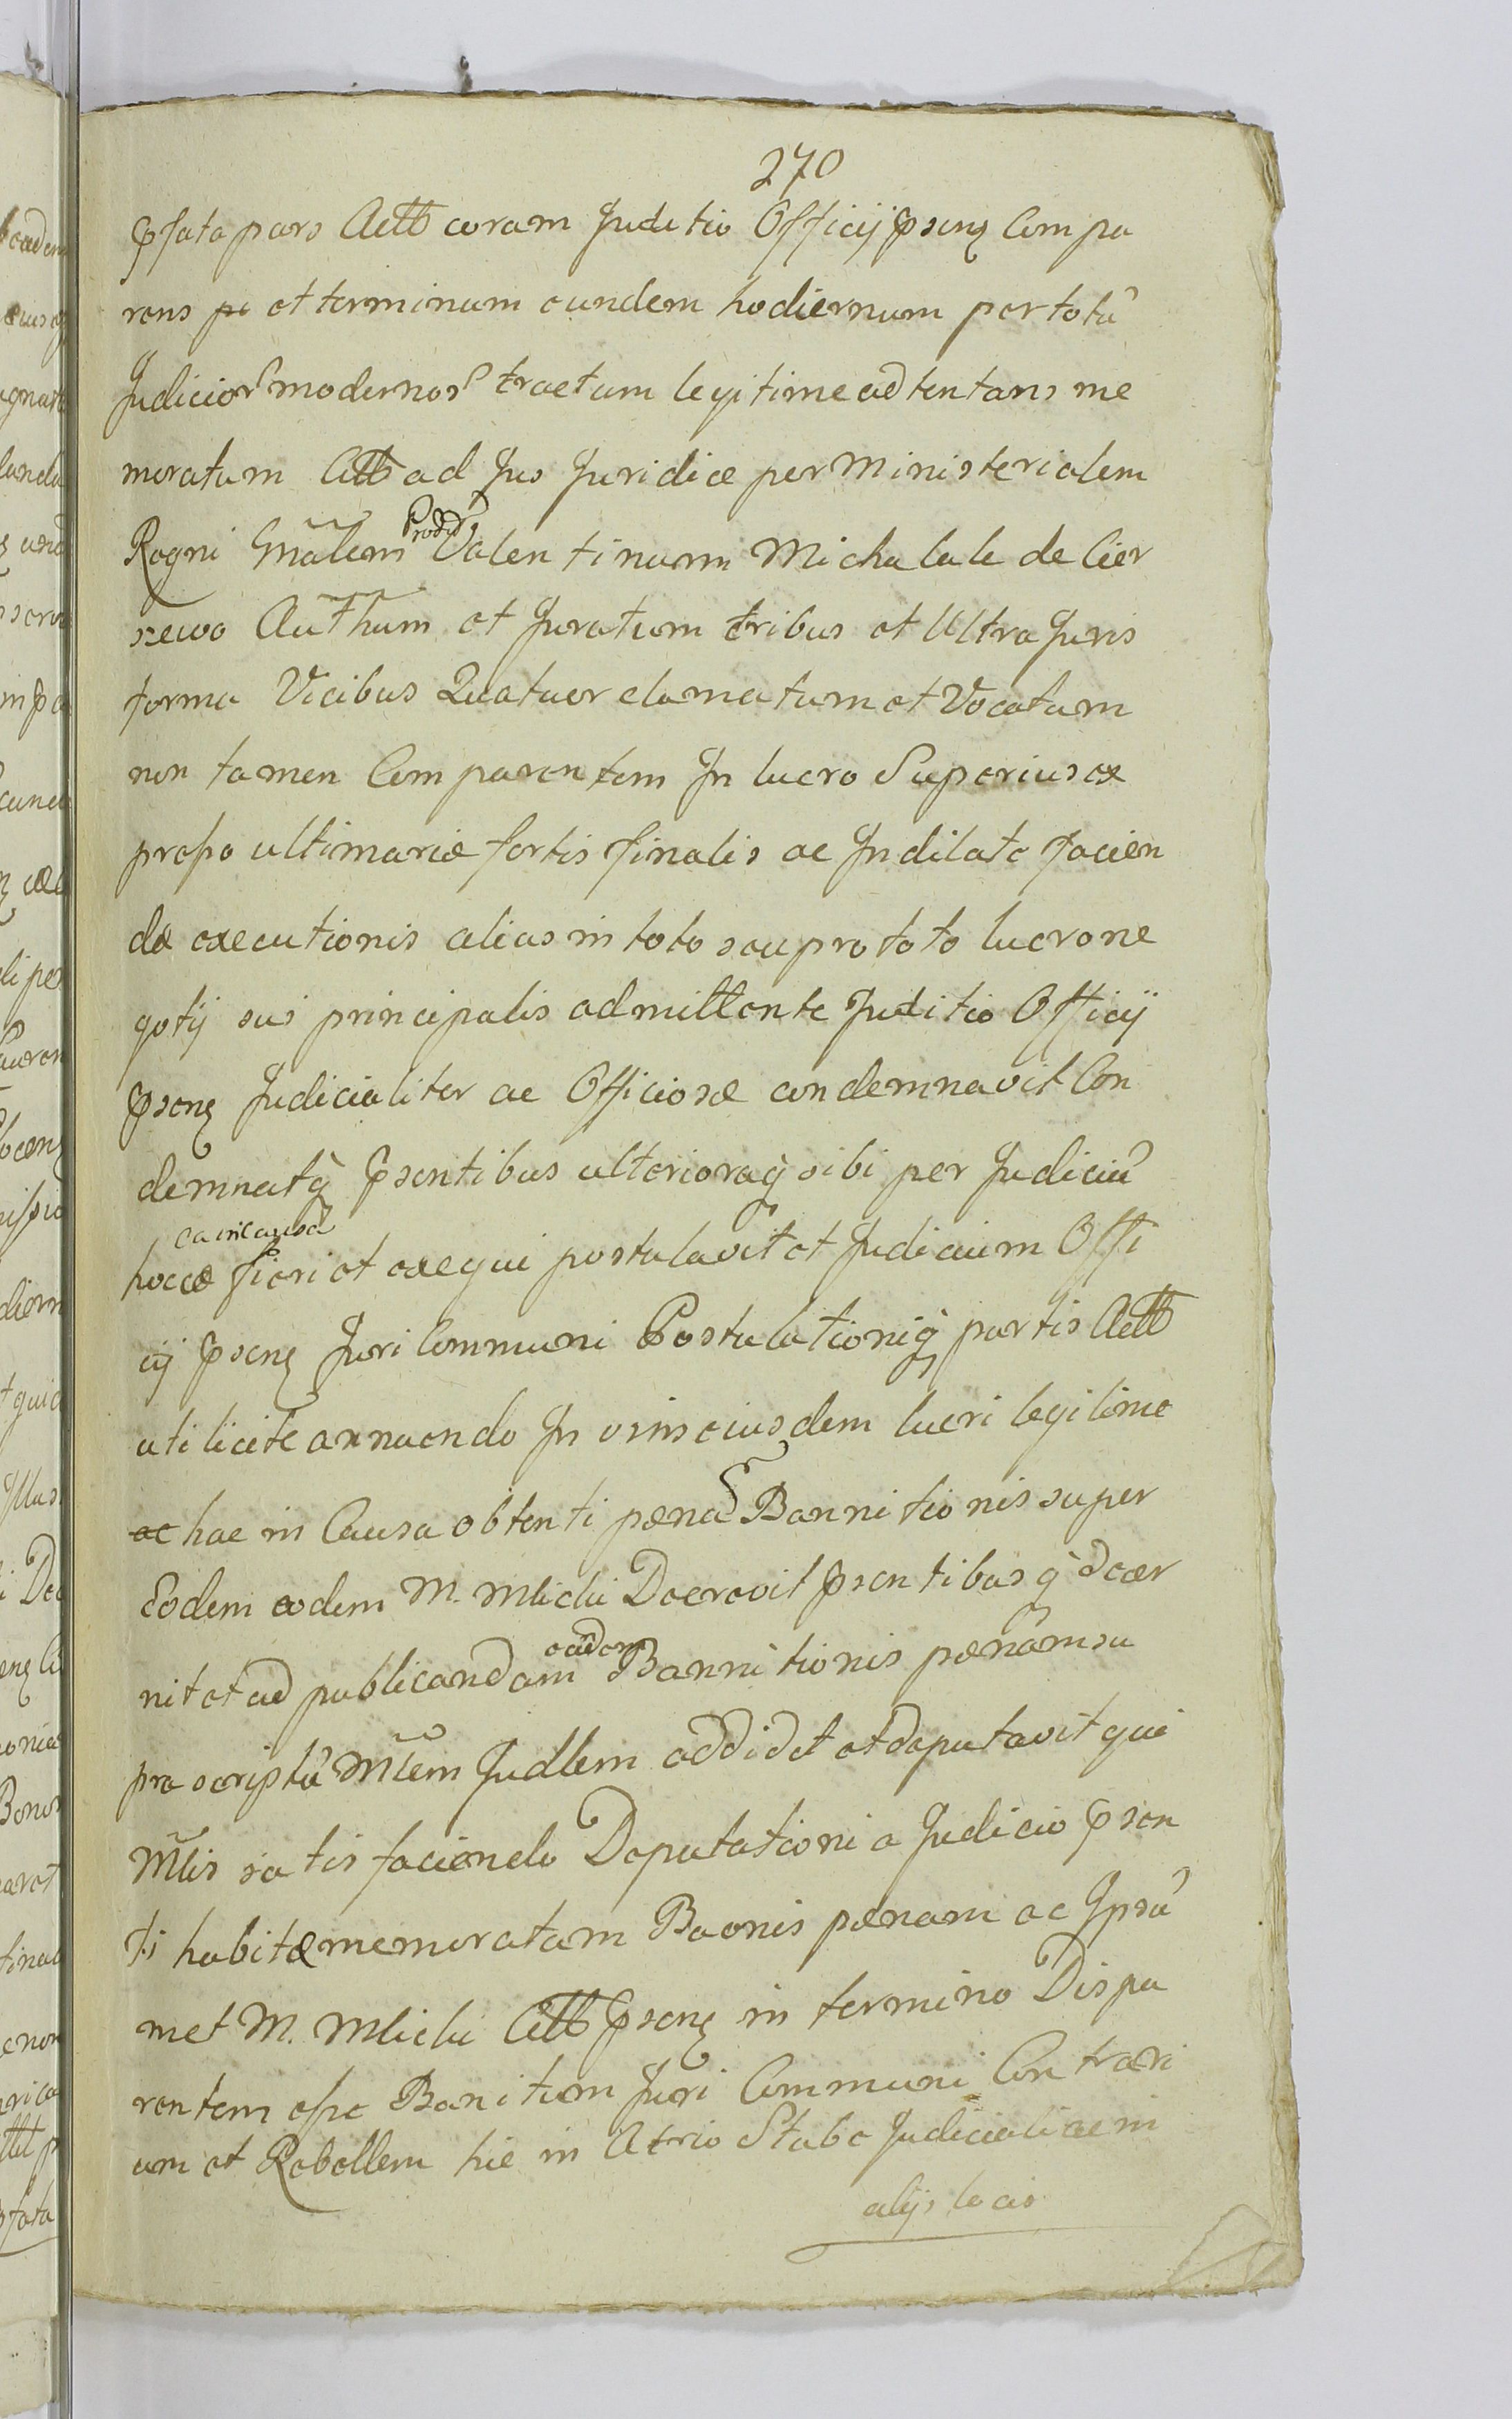 270
Pfata pars Actt coram Juditio Officij psenq Compa
rens et terminum eundem hodiernum per totu
Judicior modernor tractum legitime adtentans me
moratum Citt ad Jus Juridice per Ministerialem
Regni Gnãlem Provid Valentinum Michalale de Cier
zewo Authum et Juratum tribus et Ultra Juris
forma Vicibus Quatuor clamatum et Vocatum
non tamen Comparentem In lucro Superius ex
presso ultimariæ fortis finalis ac Indilate facien
dæ executionis alias in toto seu pro toto lucro ne
gotij sui principalis admittente Juditio Officij
psenq Judicialiter ac Officiose condemnavit Con
demnatq psentibus ulterioraq sibi per Judiciu
hocce ea in causa fieri et exequi postulavit et Judicium Offi
cij psenq Juri Communi Postulationiq partis Actt
uti licite annuendo In vim eiusdem lucri legitime
ac hac in Causa obtenti pœna Bannitionis super
Eodem eodem M. Mlicki Decrevit psentibus q decer
nit et ad publicandam eadem Bannitionis pœnam su
pra scriptu Mlem Judlem addidit et deputavit qui
Mlis satis faciendo Deputationi a Judicio psen
ti habitæ memoratam Baonis pœnam ac Ipsu
met M. Mlicki Citt psenq in termino Dispa
rentem esse Banitum Juri Communi Contrari
um et Rebellem hic in Atrio Stubæ Judicialis ac in
alijs locis